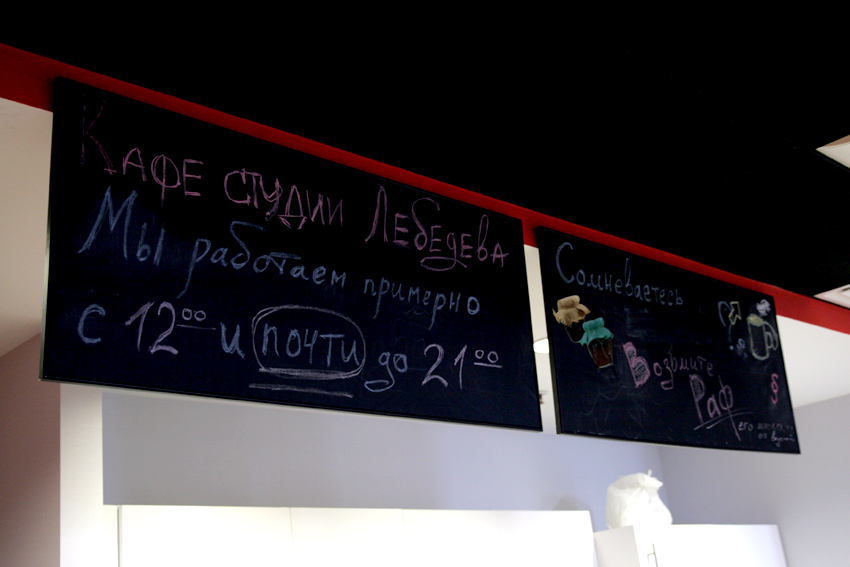 Кафе студии Лебедева
Мы работаем примерно
с 12⁰⁰ и почти до 21⁰⁰
Сомневаетесь
Возьмите
Раф
его